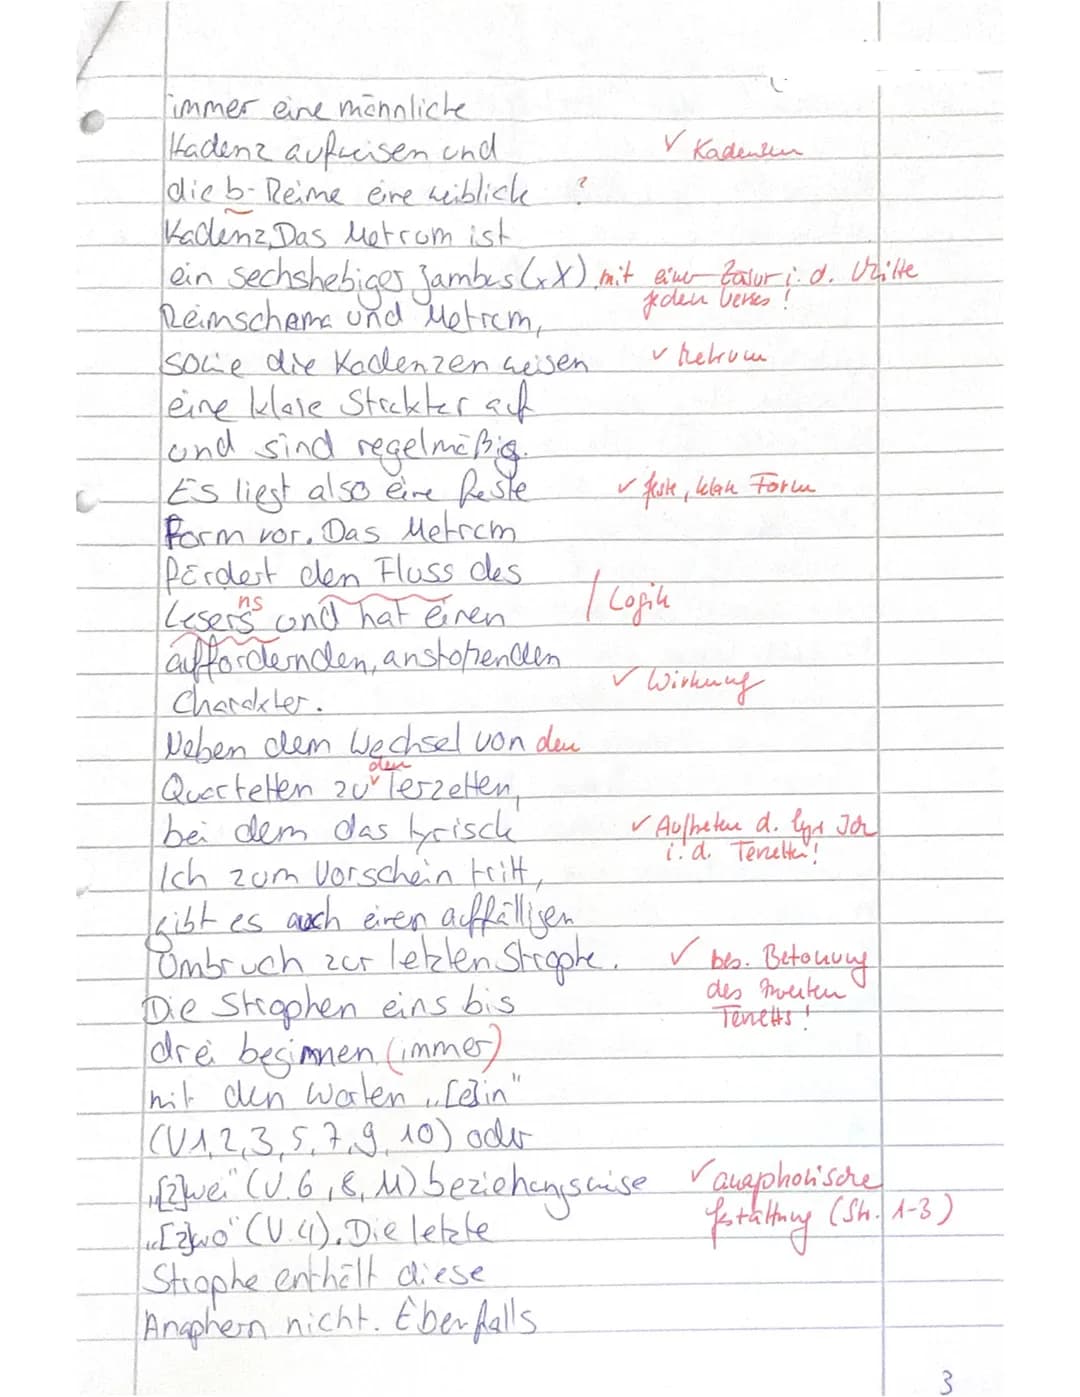 immer eine männliche
Kadenz aufweisen und ✓ Kadenzen
die b-Reime eine weibliche ?
Kadenz. Das Metrum ist
ein sechshebiger Jambus (xX) mit einer Zäsur i. d. Mitte
jeden Verses!
Reimschema und Metrum,
sowie die Kadenzen weisen ✓ Metrum
eine klare Struktur auf
und sind regelmäßig.
Es liegt also eine feste ✓ feste, klare Form
Form vor. Das Metrum
fördert den Fluss des
ns
Lesers und hat einen / Logik
auffordernden, anstoßenden
Charakter. ✓ Wirkung
Neben dem Wechsel von den
den
Quartetten zu Terzetten,
bei dem das lyrisch ✓ Auftreten d. lyr. Ich
i. d. Terzetten!
Ich zum Vorschein tritt,
gibt es auch einen auffälligen
Umbruch zur letzten Strophe. ✓ bes. Betonung
des zweiten
Terzetts!
Die Strophen eins bis
drei beginnen (immer)
mit den Worten „[e]in"
(V1,2,3,5,7,9,10) oder
„[z]wei" (V.6,8,11) beziehungsweise ✓ anaphorische
Gestaltung (Str. 1-3)
„[z]wo" (V.4). Die letzte
Strophe enthält diese
Anaphern nicht. Ebenfalls
3